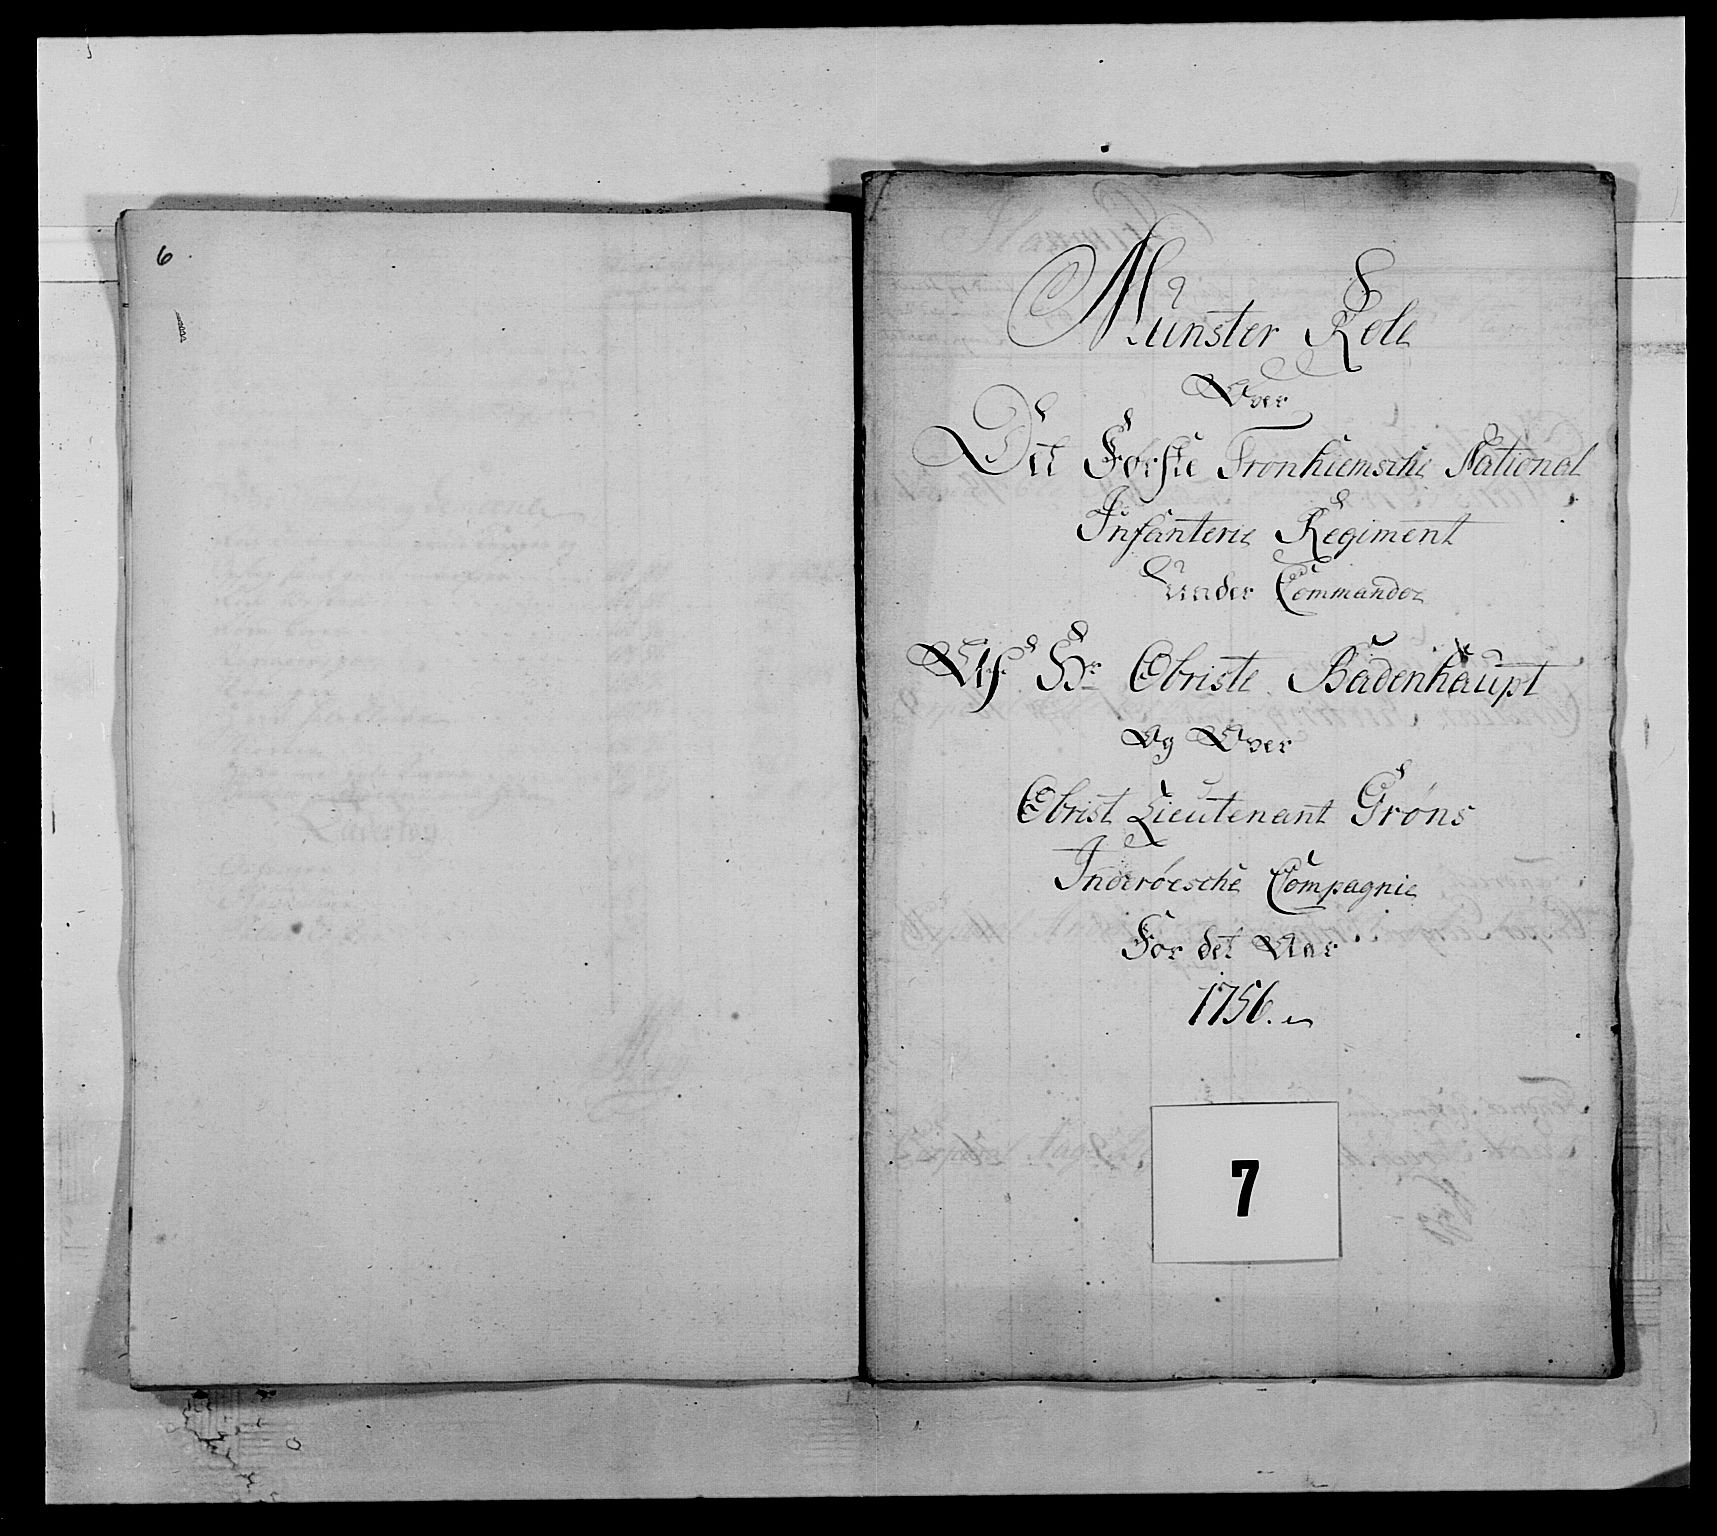 6
Munster Role
Over
Det Førſte Tronhiemsche National
Infanterie Regiment
Under Commandoe
Af Hr Obriste Badenhaupt
Og Over
Obrist Lieutenant Grøns
Inderöesche Compagnie
For det Aar
1756.
7